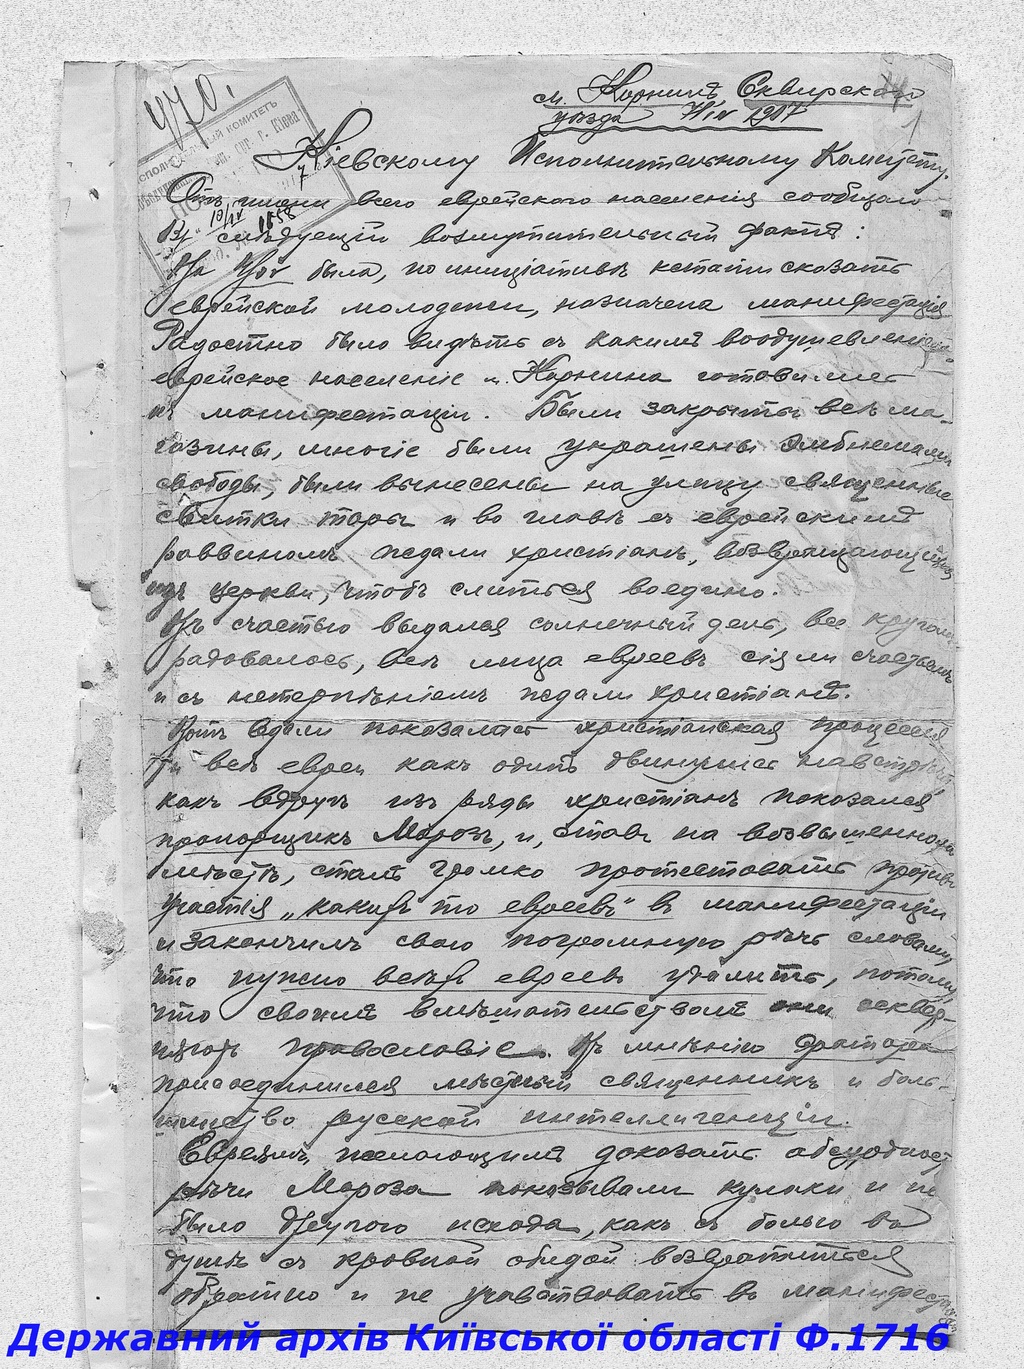 470.
м. Корнинъ Сквирскаго
уѣзда 7/IV 1917
1
Кіевскому Исполнительному Комитету.
Отъ имени всего еврейскаго населенія сообщаю
слѣдующій возмутительный фактъ:
была, по иниціативѣ кстати сказать
еврейской молодежи, назначена манифестація
Радостно было видѣть съ какимъ воодушевленіемъ
еврейское населеніе м. Корнина готовилось
къ манифестаціи. Были закрыты всѣ ма-
газины, многіе были украшены эмблемами
свободы, были вынесены на улицу священные
свитки торы и во главѣ съ еврейскимъ
раввиномъ ждали христіанъ, возвращающихся
изъ церкви, чтобъ слиться воедино.
Къ счастью выдался солнечный день, все кругомъ
радовалось, всѣ лица евреевъ сіяли счастьемъ
и съ нетерпѣніемъ ждали христіанъ.
Вотъ вдали показалась христіанская процессія
и всѣ евреи какъ одинъ двинулись навстрѣчу,
какъ вдругъ изъ ряды христіанъ показался
прапорщикъ Морозъ, и, ставъ на возвышенномъ
мѣстѣ, сталъ громко протестовать противъ
участія „какихъ то евреевъ" въ манифестаціи
и закончилъ свою погромную рѣчь словами,
что нужно всѣхъ евреевъ удалить, потому,
что своимъ вмѣшательствомъ они осквер-
няютъ православіе. Къ мнѣнію оратора
присоединился мѣстный священникъ и боль-
шинство русской интеллигенціи.
Евреямъ, желающимъ доказать абсурдность
рѣчи Мороза показывали кулаки и не
было другого исхода, какъ съ болью въ
душѣ съ кровной обидой возвратиться
обратно и не участвовать въ манифестаціи
Державний архів Київської області Ф.1716